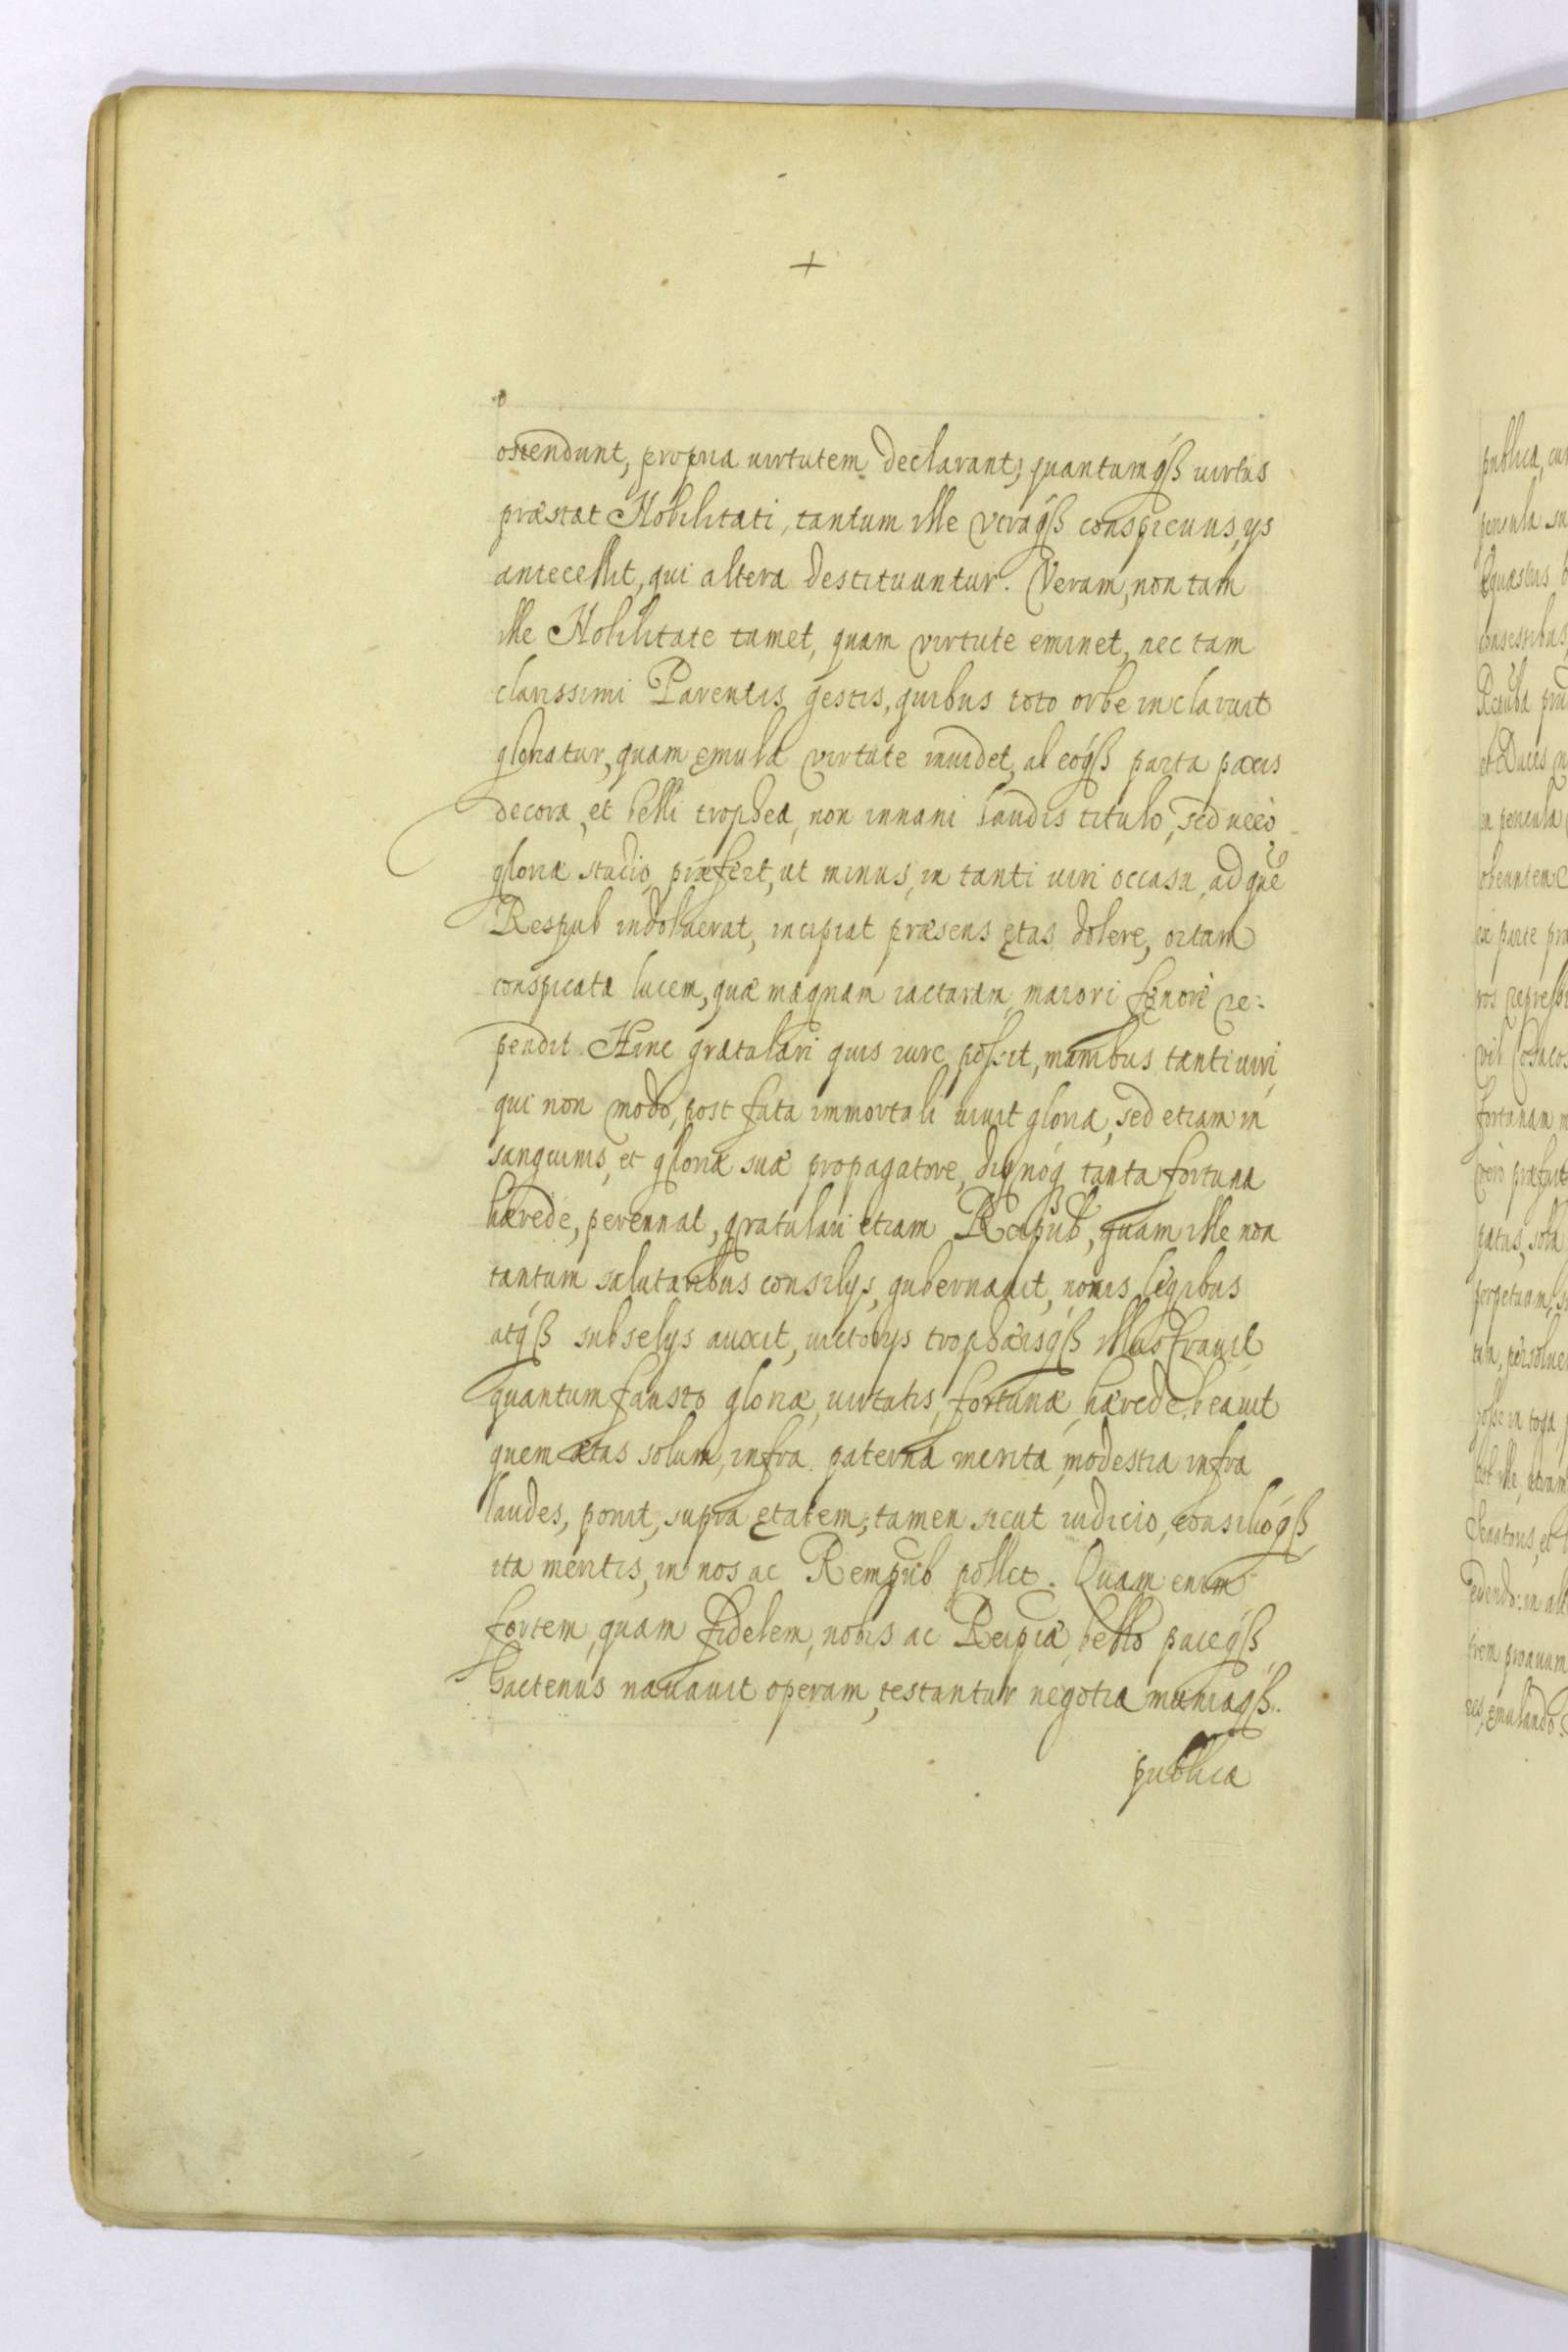 +
ostendunt, propria uirtutem declarant, quantumqꝫ uirtus
præstat Nobilitati, tantum ille vtraqꝫ conspicuus, ys
antecellit, qui altera destituuntur. Verum, non tam
ille Nobilitate tamet, quam virtute eminet, nec tam
clarissimi Parentis gestis, quibus toto orbe inclaruit
gloriatur, quam ęmula virtute inuidet, ab eoqꝫ parta pacis
decora, et belli trophea, non innani laudis titulo, sed uero
gloriæ studio, præfert, ut minus, in tanti uiri occasu, ad quē
Respub indoluerat, incipiat præsens ętas dolere, ortam
conspicata lucem, quæ magnam iacturam maiori fęnore re:
pendit. Hinc gratulari quis iure possit, manibus tanti uiri,
qui non modo, post fata immortali uiuit gloria, sed etiam in
sanguinis, et gloriæ suæ propagatore, dignóqꝫ tanta fortuna
hærede, perennat, gratulari etiam Reipub, quam ille non
tantum salutaribus consilys, gubernauit, nouis legibus
atqꝫ subselys auxit, uictorys trophæisqꝫ illustrauit
quantum fausto gloriæ, uirtutis, fortunæ, hærede, beauit
quem ætas solum, infra paterna merita, modestia infra
laudes, ponit, supra ętatem, tamen sicut iudicio, consilióqꝫ
ita meritis, in nos ac Rempub pollet. Quam enim
fortem, quam fidelem, nobis ac Reipcæ, bello paceqꝫ
hactenus nauauit operam, testantur negotia muniaqꝫ.
publica
publica, cu
Equestris
consessibus
et Duces
ex parte
ros repress
vit Cosacos
fortunam
Senatoris, et